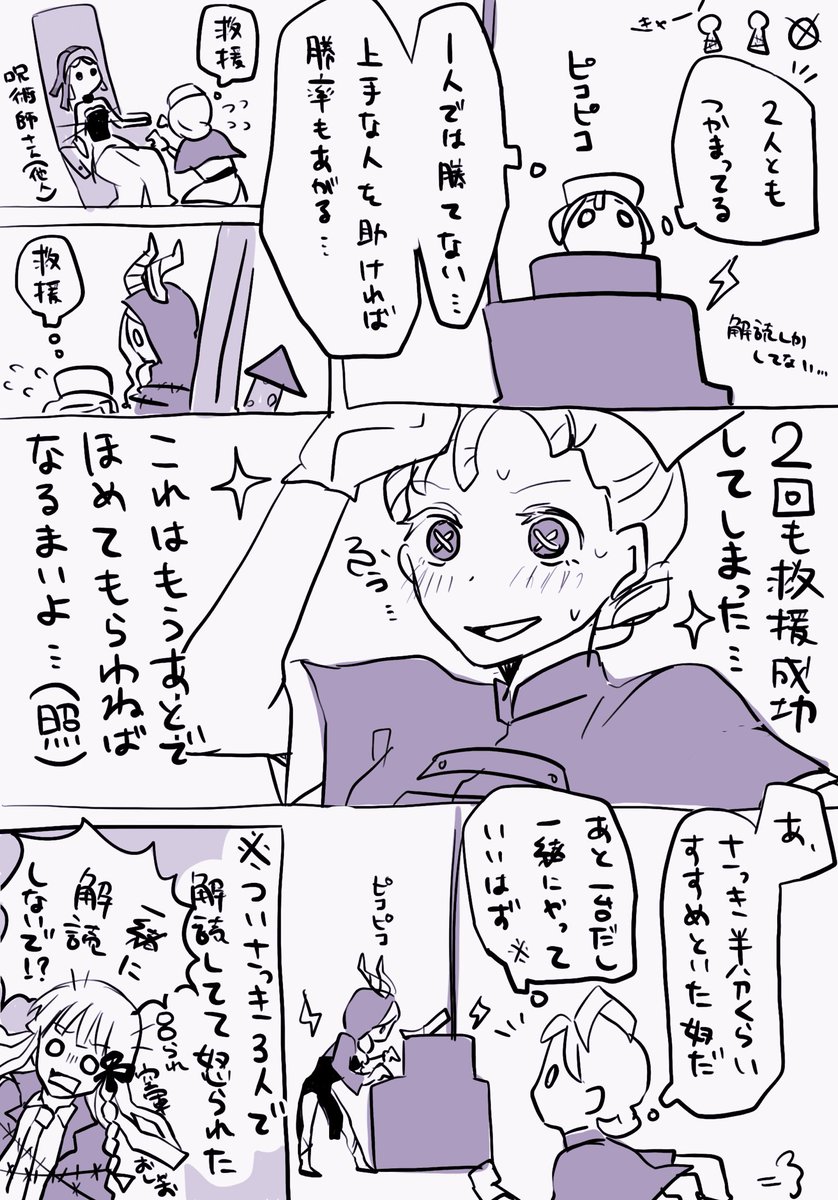 きゃー
2人とも
つかまってる
ピコピコ
解読しか
してない…
1人では勝てない…
上手な人を助ければ
勝率もあがる…
救援
呪術師さん(他人)
救援
2回も救援成功
してしまった…
ふぅ…
これはもうあとで
ほめてもらわねば
なるまいよ…(照)
あ、
さっき半分くらい
すすめといた奴だ
あと一台だし
一緒にやって
いいはず※
ピコピコ
※ついさっき3人で
解読してて怒られた
一緒に
解読
しないで!?